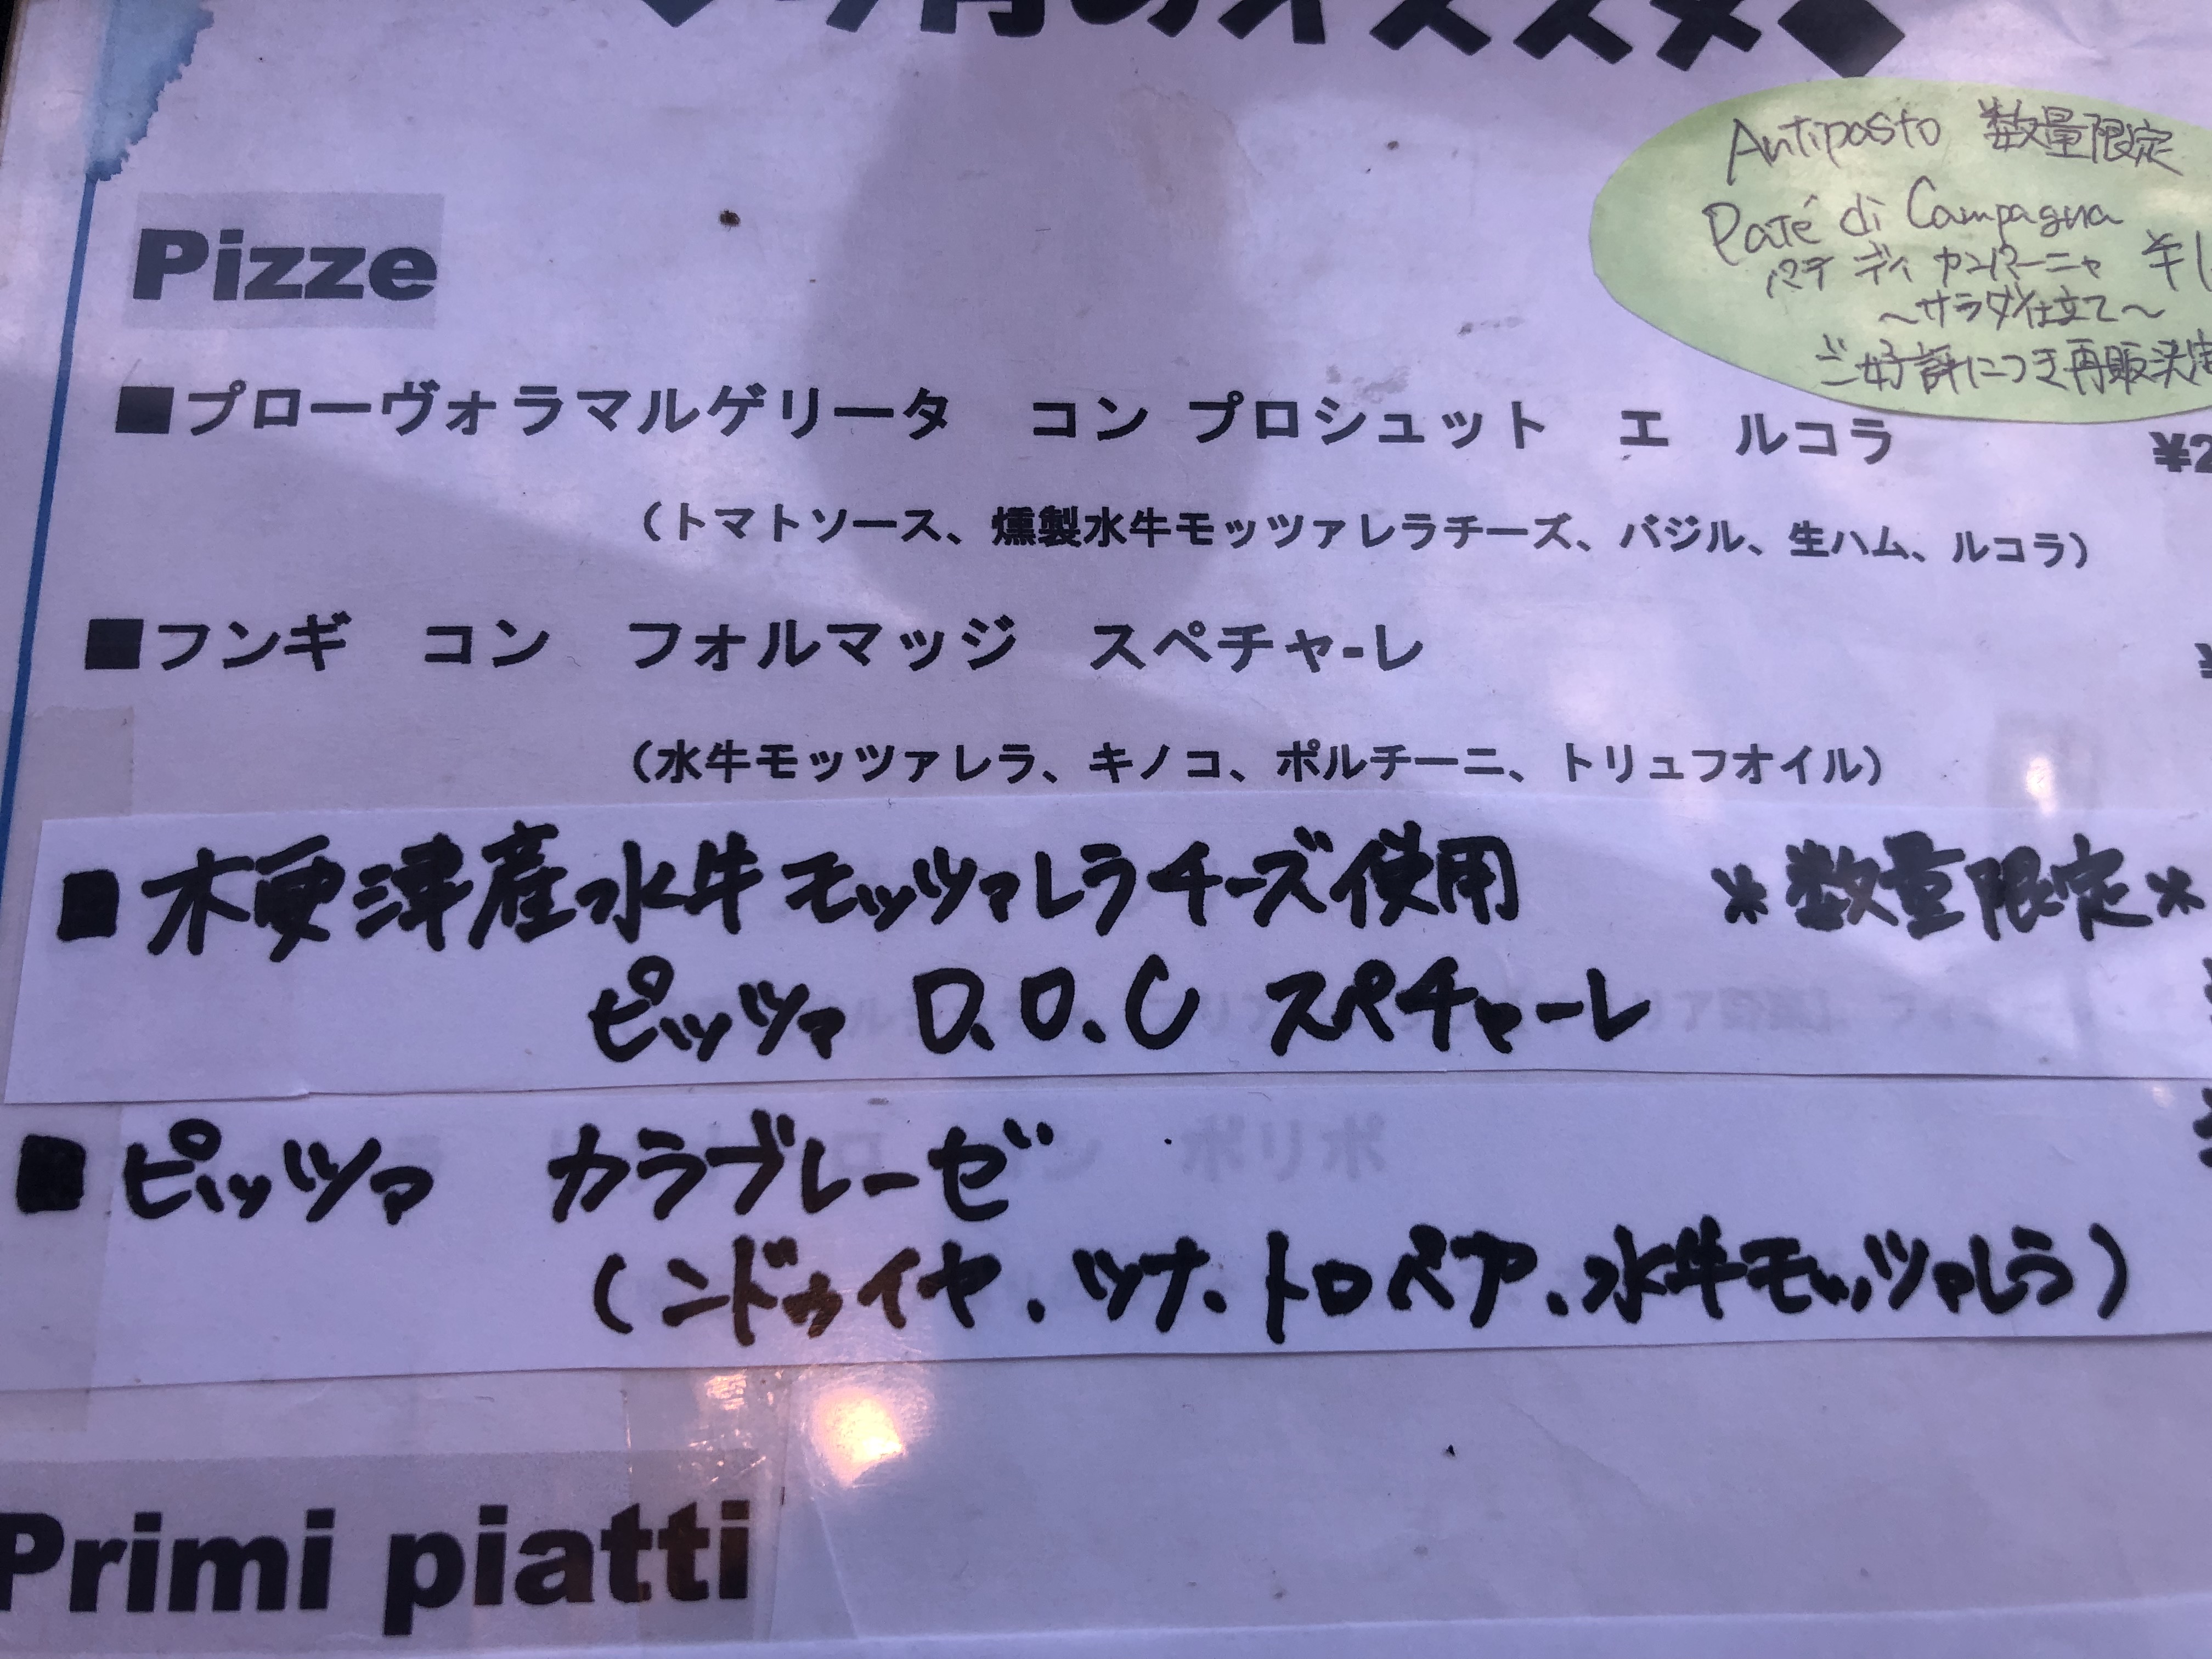 今月のオススメ◆
Antipasto 数量限定
Paté di Campagna
パテ ディ カンパーニャ ¥1
～サラダ仕立て～
ご好評につき再販決定
Pizze
■プローヴォラマルゲリータ コン プロシュット エ ルコラ ¥2
（トマトソース、燻製水牛モッツァレラチーズ、バジル、生ハム、ルコラ）
■フンギ コン フォルマッジ スペチャ-レ ¥
（水牛モッツァレラ、キノコ、ポルチーニ、トリュフオイル）
■木更津産水牛モッツァレラチーズ使用 *数量限定*
ピッツァ D.O.C スペチャーレ
■ピッツァ カラブレーゼ
（ンドゥイヤ、ツナ、トロペア、水牛モッツァレラ）
Primi piatti